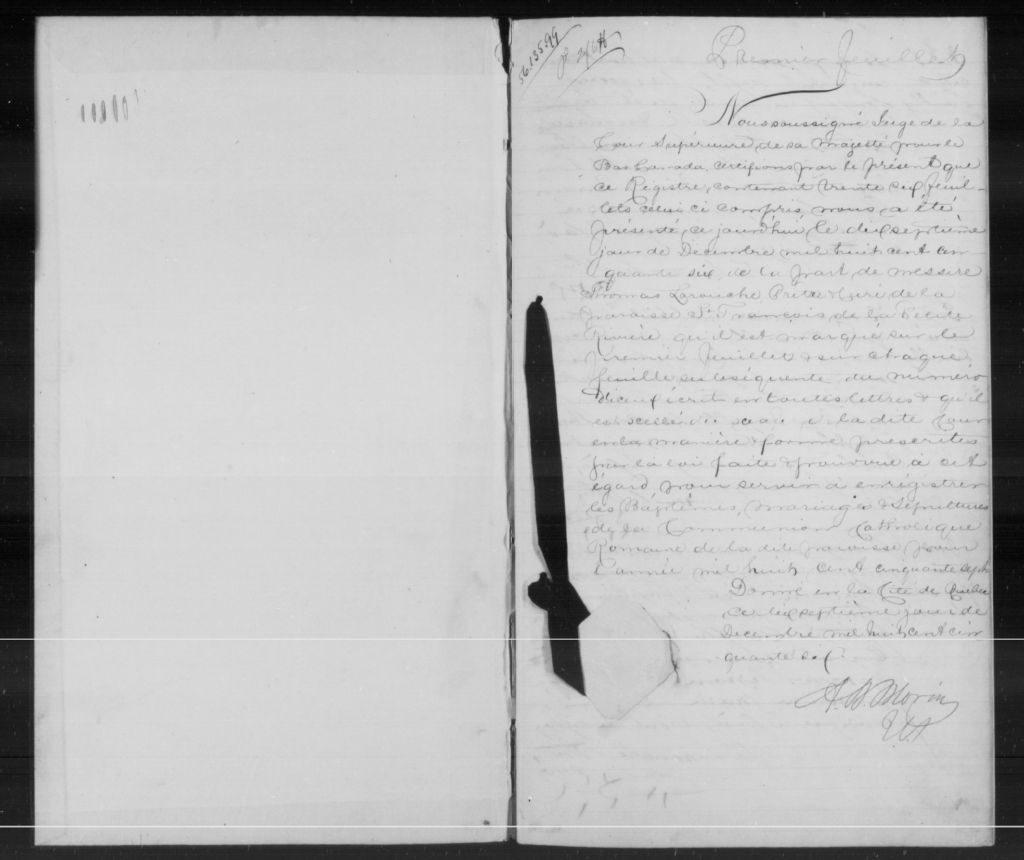 56.135.99
Premier feuillet
Nous soussigné Juge de la
Cour Supérieure de sa Majesté pour le
Bas Canada, certifions par le présent que
ce Régistre, contenant trente six feuil-
lets celui ci compris, nous a été
présenté, ce jourd'hui, le dix septième
jour de Décembre mil huit cent cin
quante six de la part de messire
Thomas Larouche Prêtre & Curé de la
paroisse St François de la Petite
Rivière, qu'il est marqué sur le
premier feuillet & sur chaque
feuille subséquente du numéro
d'iceux écrit en toutes lettres & qu'il
est scellé du sceau de la dite Cour
en la manière & forme prescrites
par la loi faite & pourvue à cet
égard, pour servir à enrégistrer
les Baptêmes, mariages & Sépultures
de la Communion Catholique
Romaine de la dite paroisse pour
l'année mil huit cent cinquante sept
Donné en la Cité de Québec
ce dix septième jour de
Décembre mil huit cent cin
quante six.
A. N. Morin